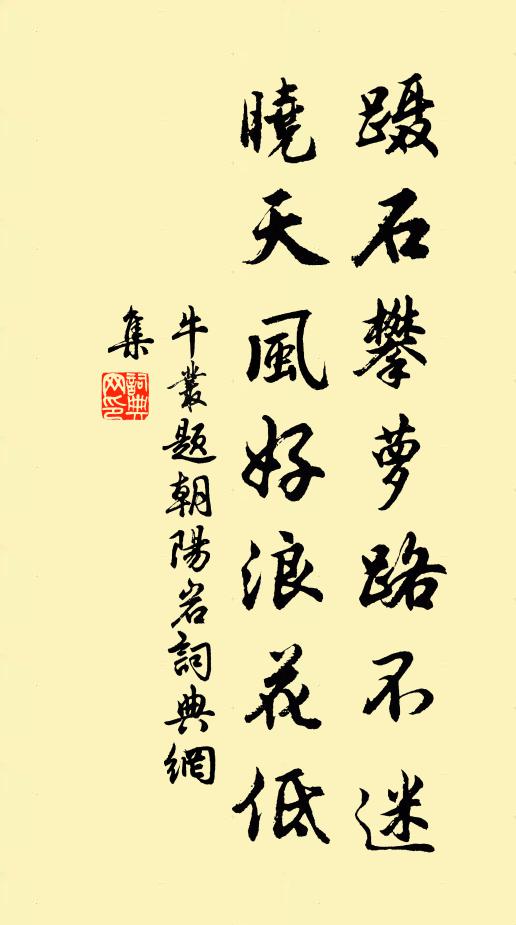 蹑石攀萝路不迷
曉天風好浪花低
牛叢题朝陽岩詞典網
集
詞典网印